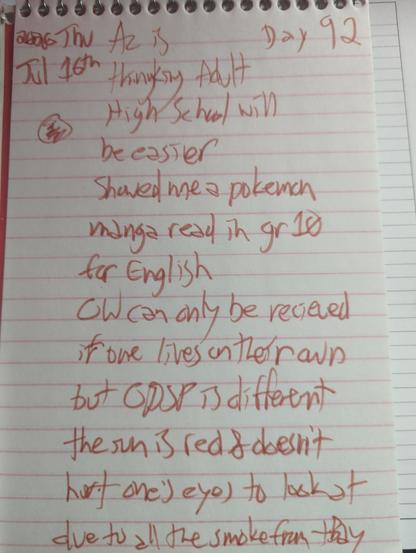 2026 Thu Az is Day 92
Jul 16th thinking Adult
High School will
be easier
Showed me a pokemon
manga read in gr 10
for English
OW can only be recieved
if one lives on their own
but ODSP is different
the sun is red & doesn't
hurt one's eyes to look at
due to all the smoke from